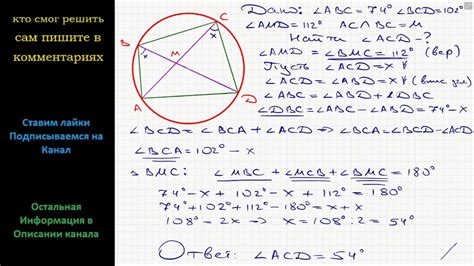 кто смог решить
сам пишите в
комментариях
Ставим лайки
Подписываемся на
Канал
Остальная
Информация в
Описании канала
B
C
x
x
M
A
D
Дано: ∠ABC = 74° ∠BCD=102°
∠AMD=112° AC∩BC = M
Найти ∠ACD-?
∠AMD = ∠BMC = 112° (вер)
Пусть ∠ACD = X
∠ACD = ∠ABD = X
∠ABC = ∠ABD + ∠DBC
∠DBC = ∠ABC - ∠ABD = 74° - X
∠BCD = ∠BCA + ∠ACD ⇒ ∠BCA = ∠BCD - ∠ACD
∠BCA = 102° - x
△ BMC: ∠MBC + ∠MCB + ∠BMC = 180°
74° - x + 102° - x + 112° = 180°
74° + 102° + 112° - 180° = x + x
108° = 2x ⇒ x = 108° : 2 = 54°
Ответ: ∠ACD = 54°